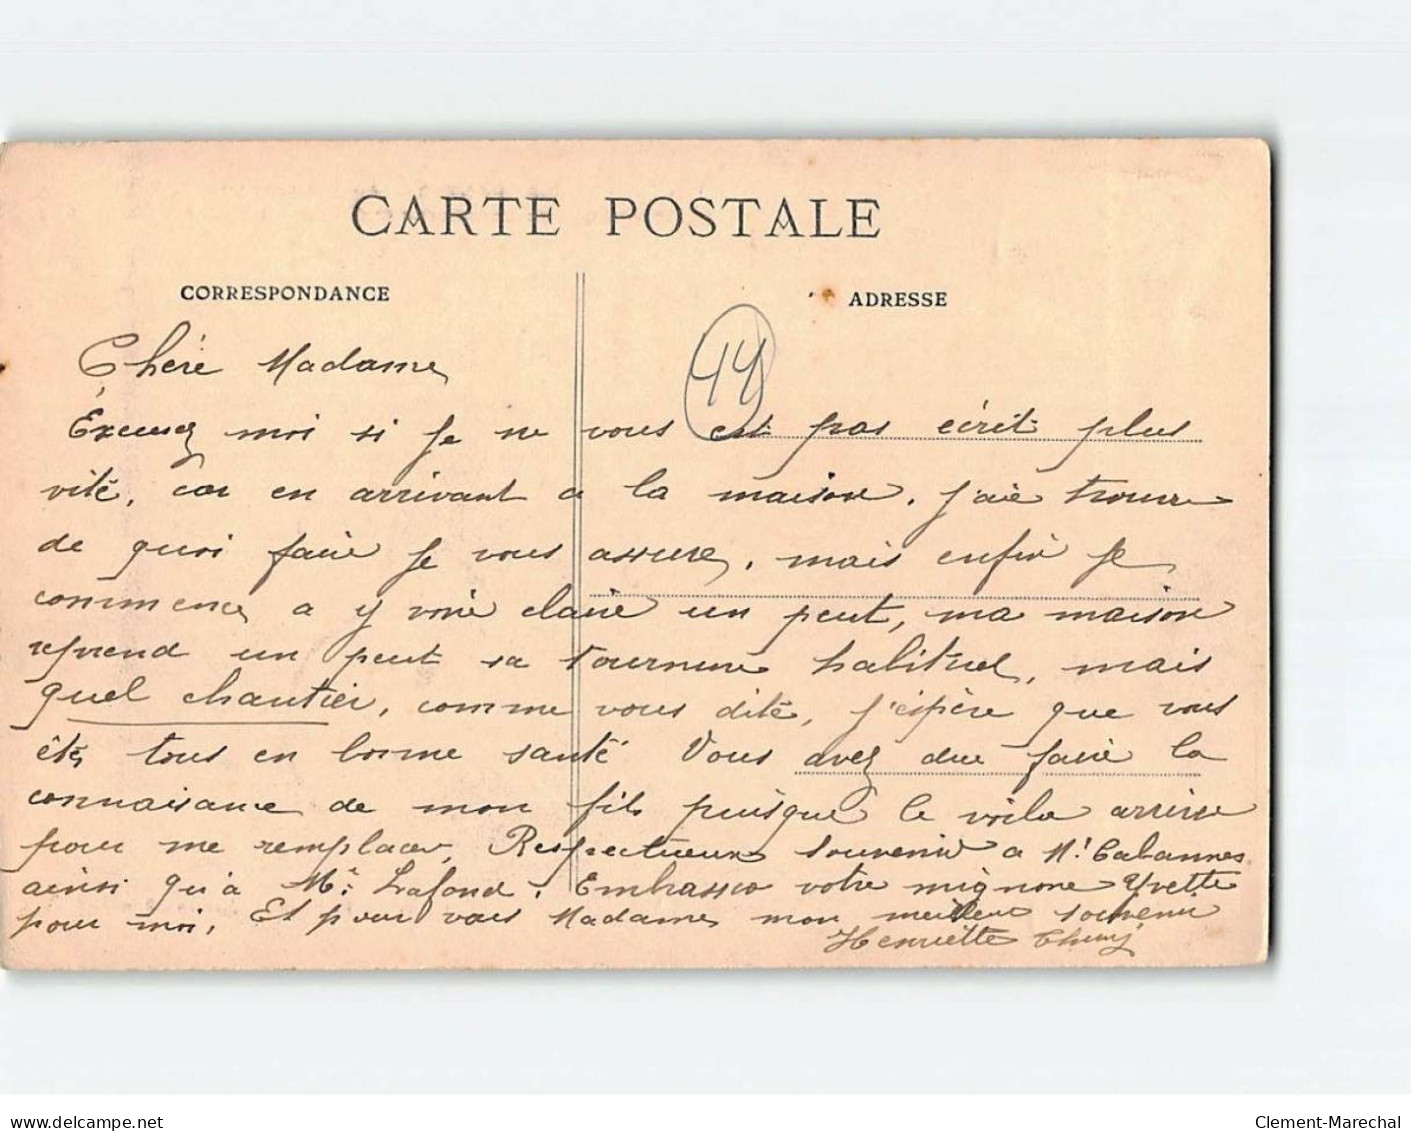 CARTE POSTALE
CORRESPONDANCE
ADRESSE
44
Chère Madame
Excusez moi si je ne vous est pas écrit plus
vité, car en arrivant a la maison, j'aie trouvre
de quoi faire je vous assure, mais enfin je
commence a y voire claire un peut, ma maison
reprend un peut sa tournure habituel, mais
quel chantier, comme vous dité, j'espère que vous
étés tous en bonne santé Vous avez due faire la
connaisance de mon fils puisque le voila arrivre
pour me remplacer, Respectueux souvenir a Mr Cabannes
ainsi qu'a Mr Lafond. Embrasser votre mignone Yvette
pour moi, Et pour vous Madame mon meilleur souvenir
Henriette
delcampe.net
Clement-Marechal